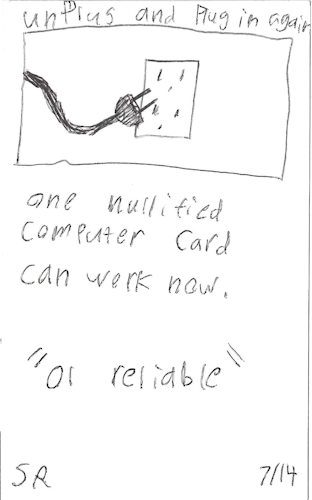 unPlug and Plug in again
one nullified
computer card
can work now.
"Ol reliable"
SR
7/14